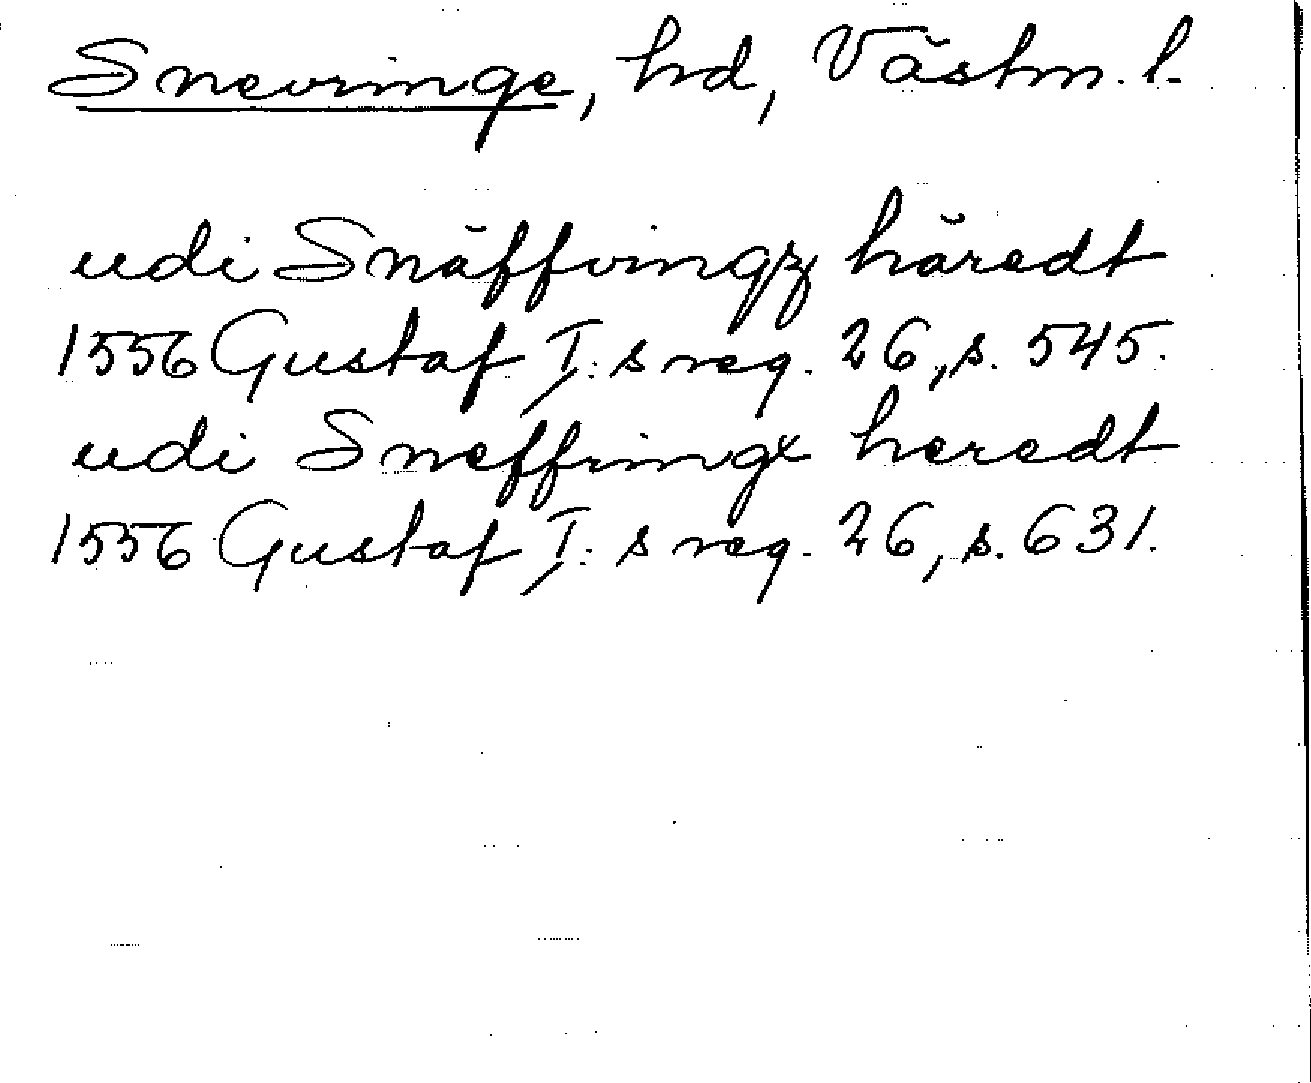 Snevringe, hd, Västm. l.
udi Snäffvingz häredt
1556 Gustaf I:s reg. 26, s. 545.
udi Sneffringx heredt
1556 Gustaf I:s reg. 26, s. 631.